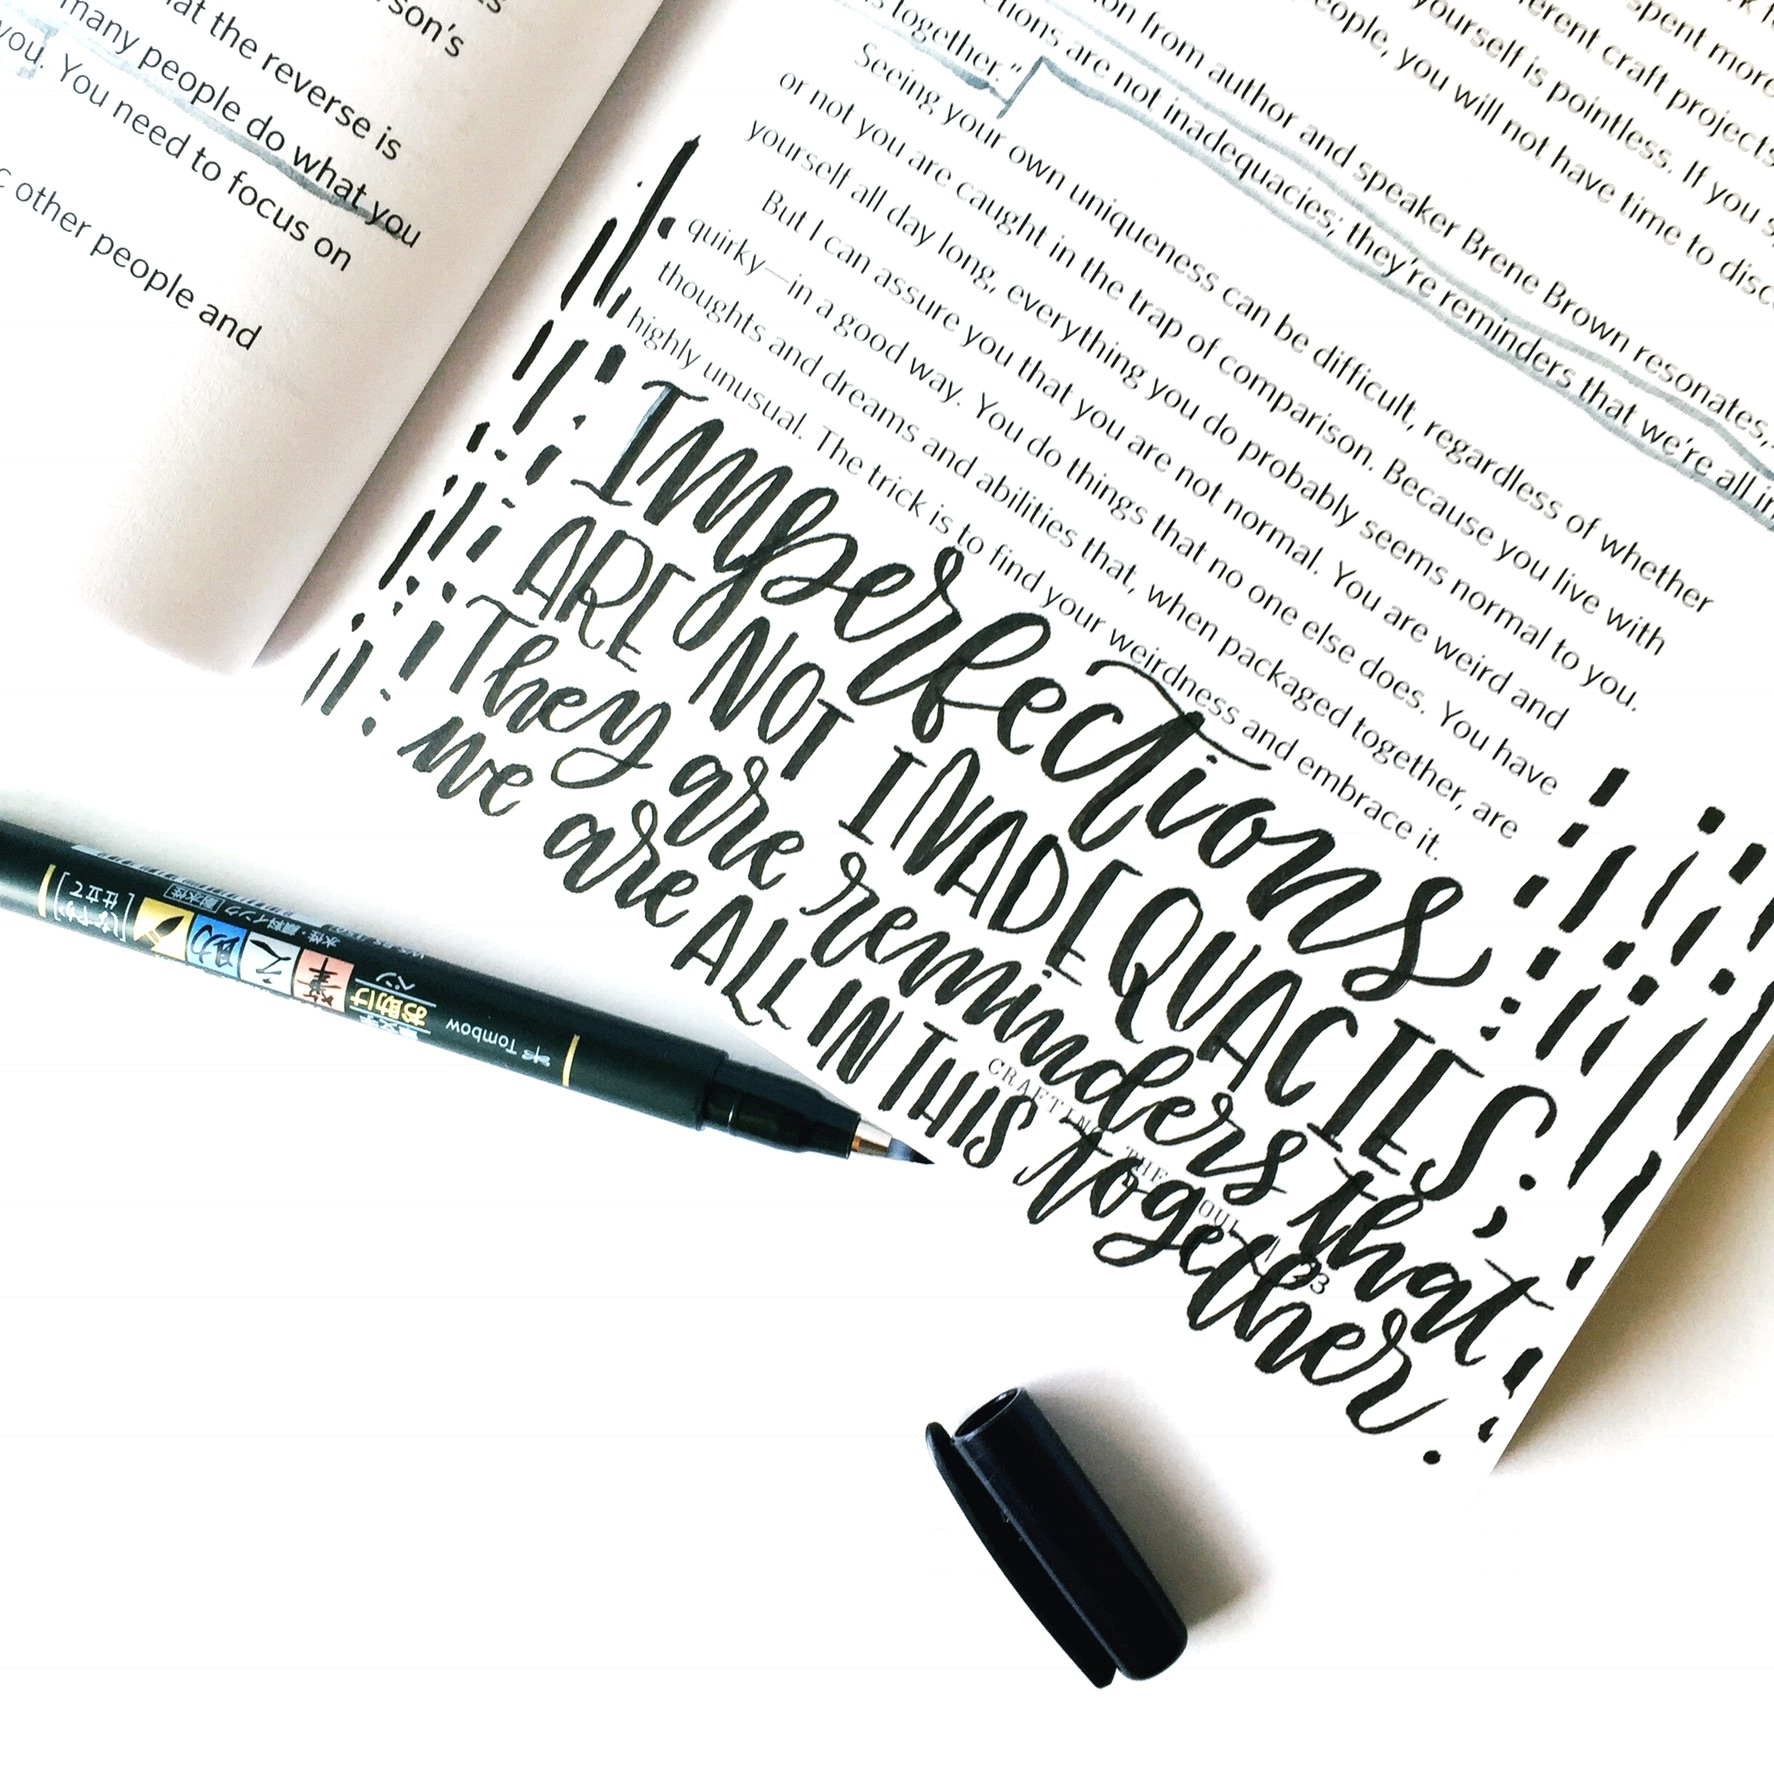 son's
at the reverse is
many people do what you
you. You need to focus on
other people and
spent more
craft projects
yourself is pointless. If you
you will not have time to
from author and speaker Brene Brown resonates,
are not inadequacies; they're reminders that we're all in
together."
Seeing your own uniqueness can be difficult, regardless of whether
or not you are caught in the trap of comparison. Because you live with
yourself all day long, everything you do probably seems normal to you.
But I can assure you that you are not normal. You are weird and
quirky—in a good way. You do things that no one else does. You have
thoughts and dreams and abilities that, when packaged together, are
highly unusual. The trick is to find your weirdness and embrace it.
Imperfections
ARE NOT INADEQUACIES;
They are reminders that
we are ALL IN THIS together.
CRAFTING THE SOUL 23
Tombow
お助け
ペン
筆之助
水性・顔料インク
[しなやか仕立て]